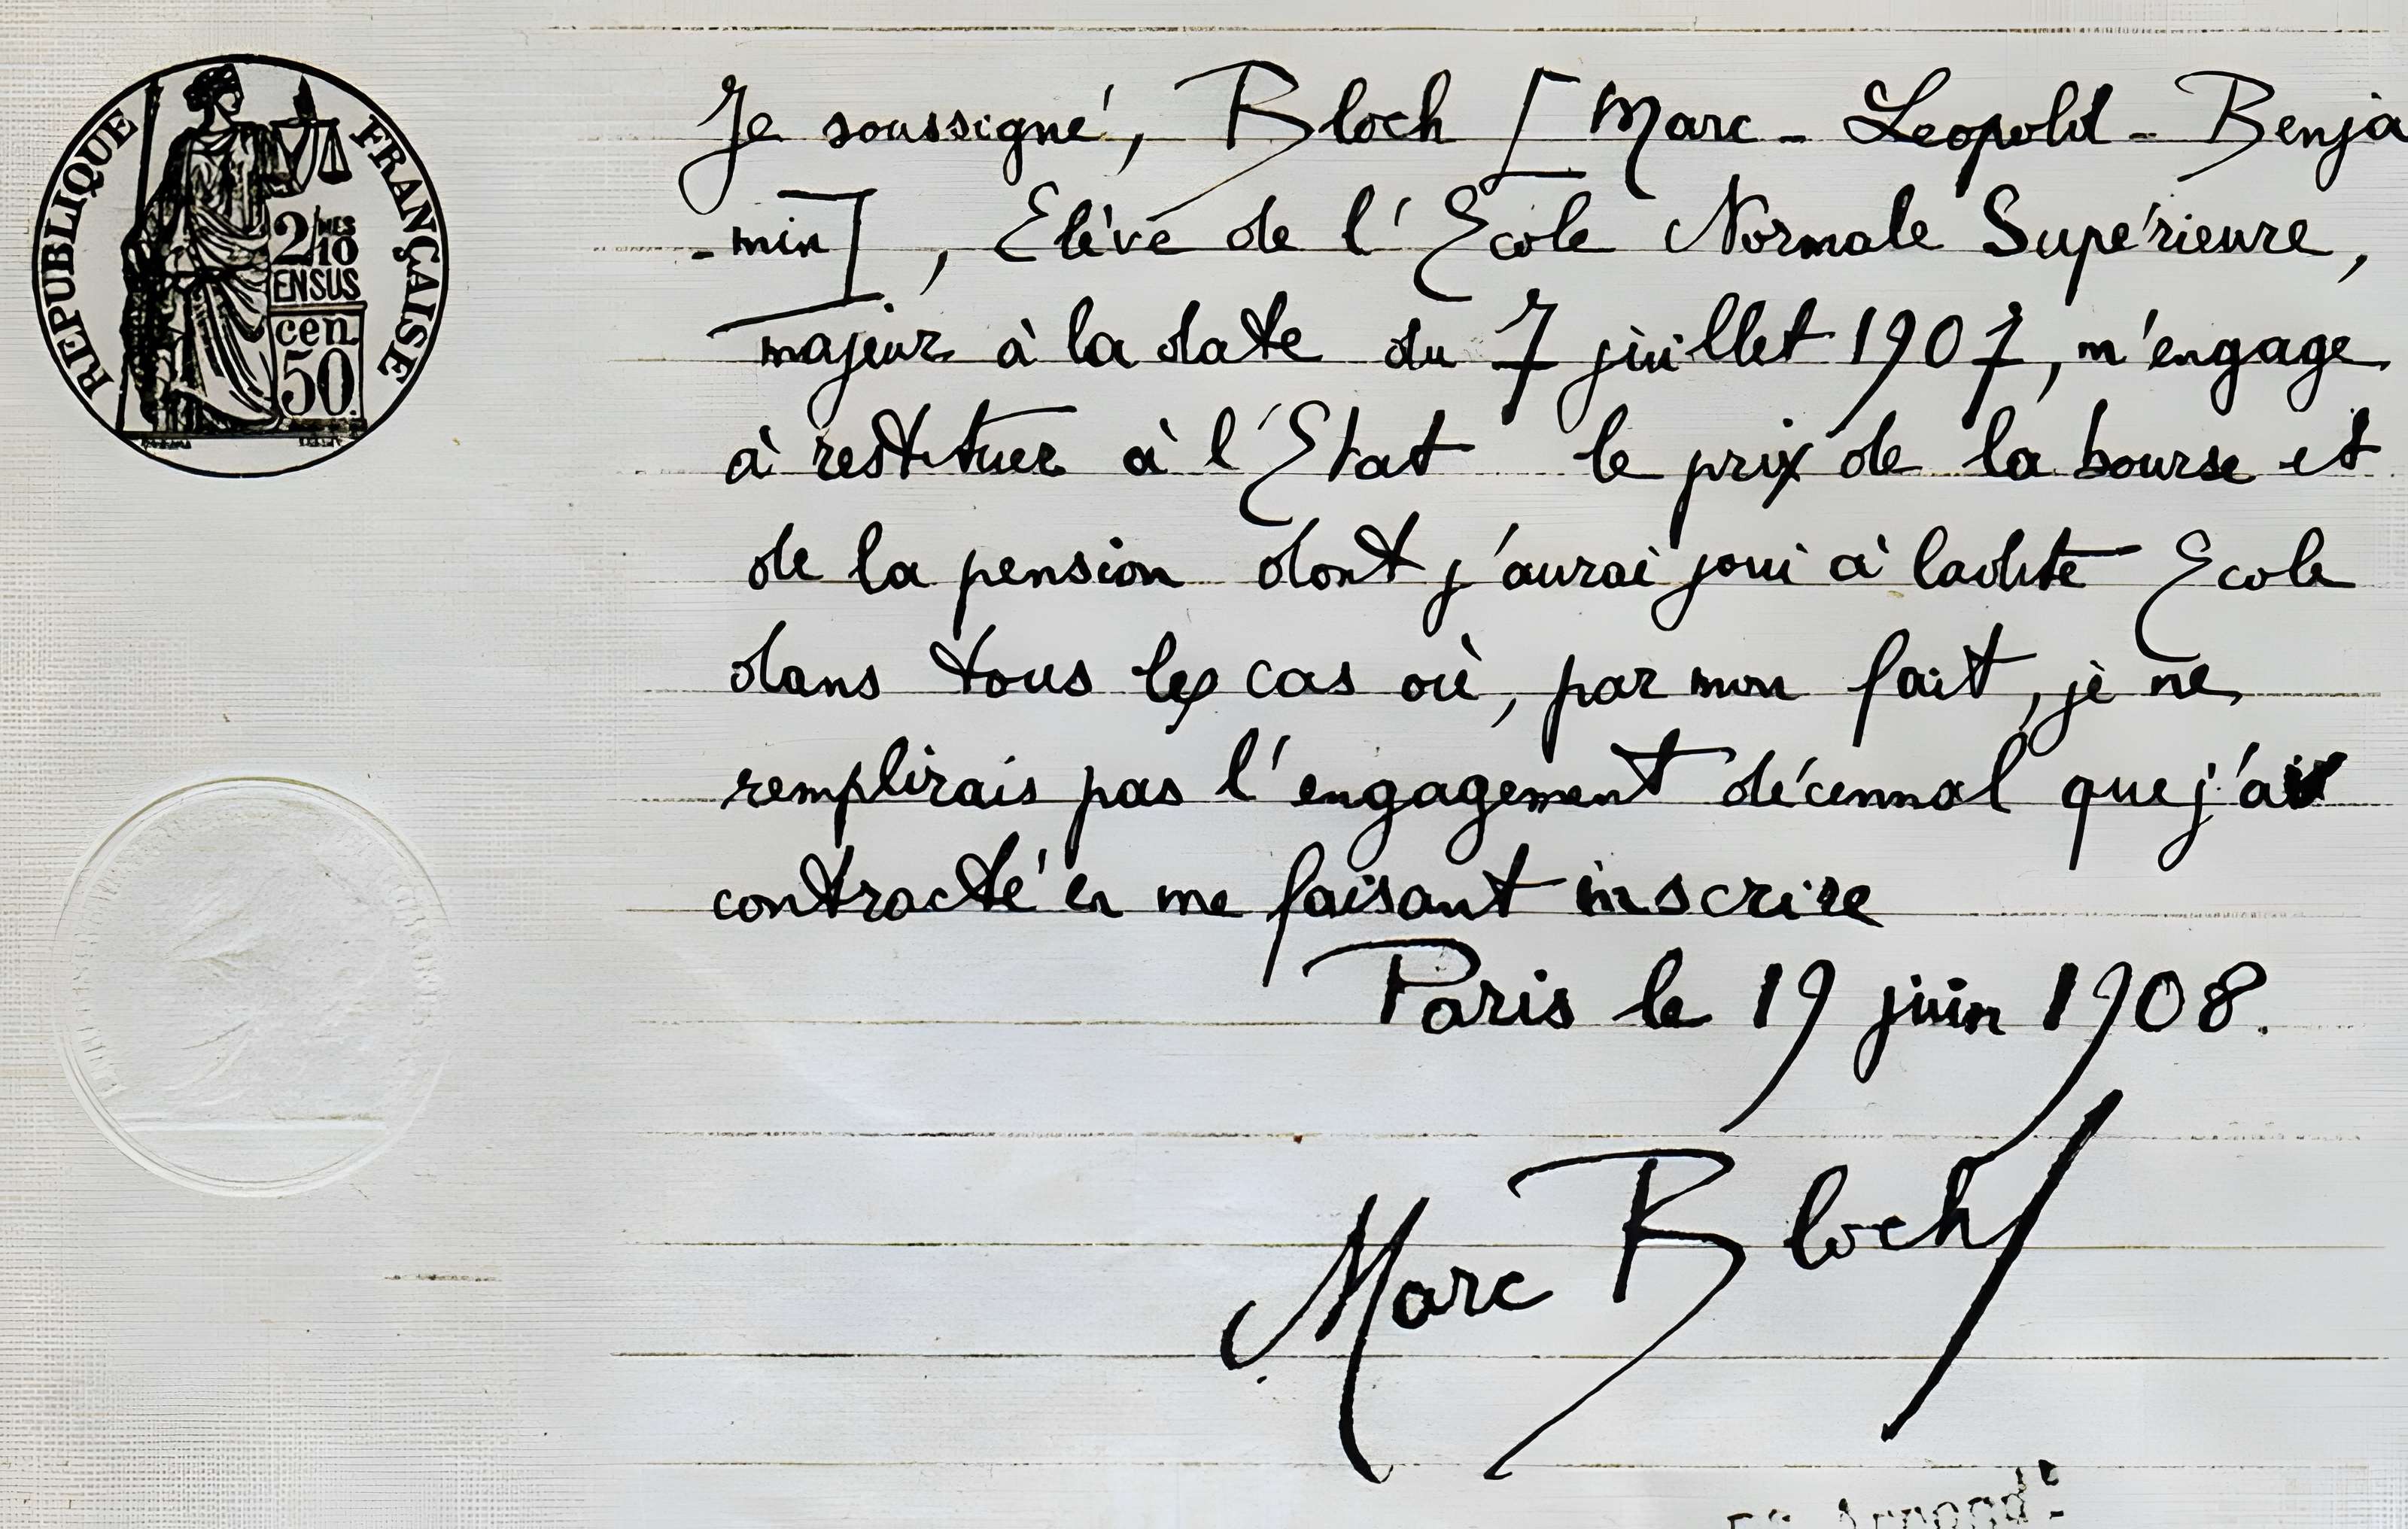 RÉPUBLIQUE FRANÇAISE
2/10 MES
EN SUS
50 cen
Je soussigné, Bloch [Marc - Leopold - Benja
-min], Elève de l'Ecole Normale Supérieure,
majeur à la date du 7 juillet 1907, m'engage
à restituer à l'Etat le prix de la bourse et
de la pension dont j'aurai joui à ladite Ecole
dans tous les cas où, par mon fait, je ne
remplirais pas l'engagement décennal que j'ai
contracté en me faisant inscrire
Paris le 19 juin 1908.
Marc Bloch